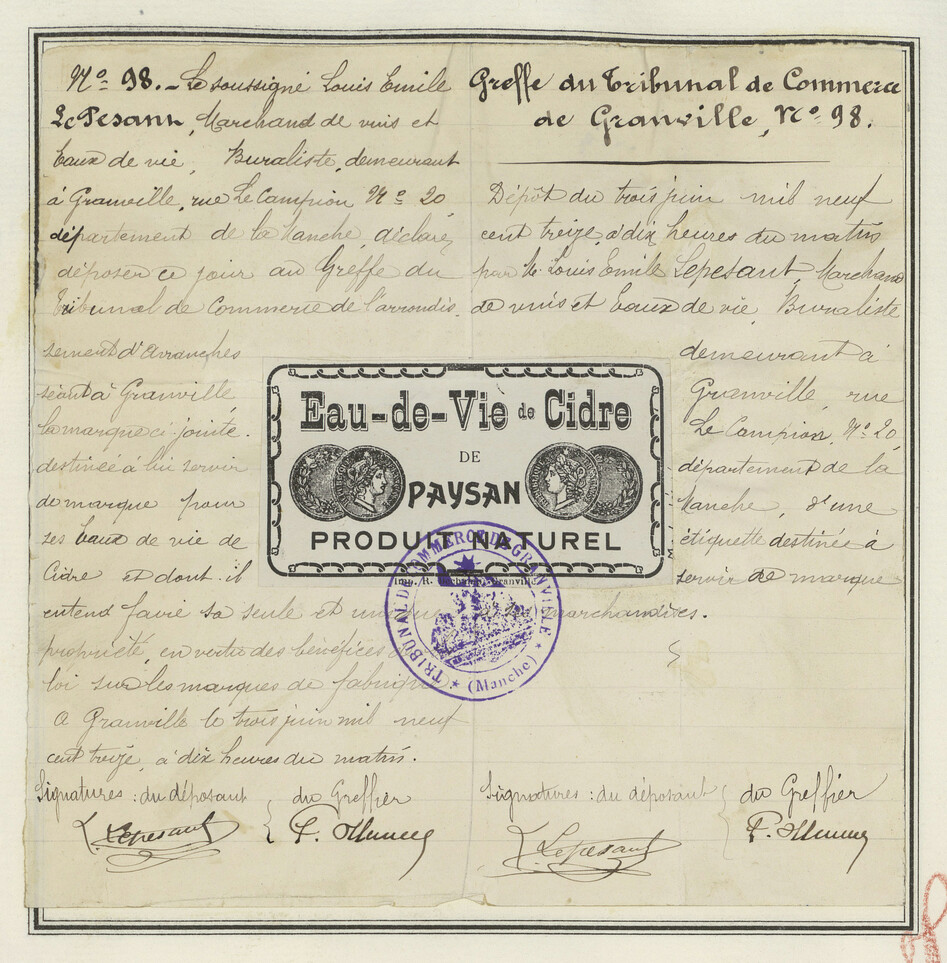 Nº 98. - Le soussigné Louis Emile
Le Pesant, Marchand de vins et
Eaux de vie, Buraliste, demeurant
à Granville, rue Le Campion Nº 20
département de la Manche, déclare
déposer ce jour au Greffe du
Tribunal de Commerce de l'arrondis.
sement d'Avranches
séant à Granville,
la marque ci-jointe.
destinée à lui servir
de marque pour
ses Eaux de vie de
Cidre et dont il
entend faire sa seule et
propriété, en vertu des bénéfices
loi sur les marques de fabrique
A Granville le trois juin mil neuf
cent treize, à dix heures du matin.
Signatures : du déposant du Greffier
Lepesant
Greffe du Tribunal de Commerce
de Granville, Nº 98.
Dépôt du trois juin mil neuf
cent treize, à dix heures du matin
par M. Louis Emile Lepesant, Marchand
de vins et Eaux de vie, Buraliste
demeurant à
Granville, rue
Le Campion, Nº 20,
département de la
Manche, d'une
étiquette destinée à
servir de marque
marchandises.
Signatures : du déposant du Greffier
Lepesant
Eau-de-Vie de Cidre
DE
PAYSAN
PRODUIT NATUREL
Imp. R. Granville
TRIBUNAL DE COMMERCE DE GRANVILLE
(Manche)